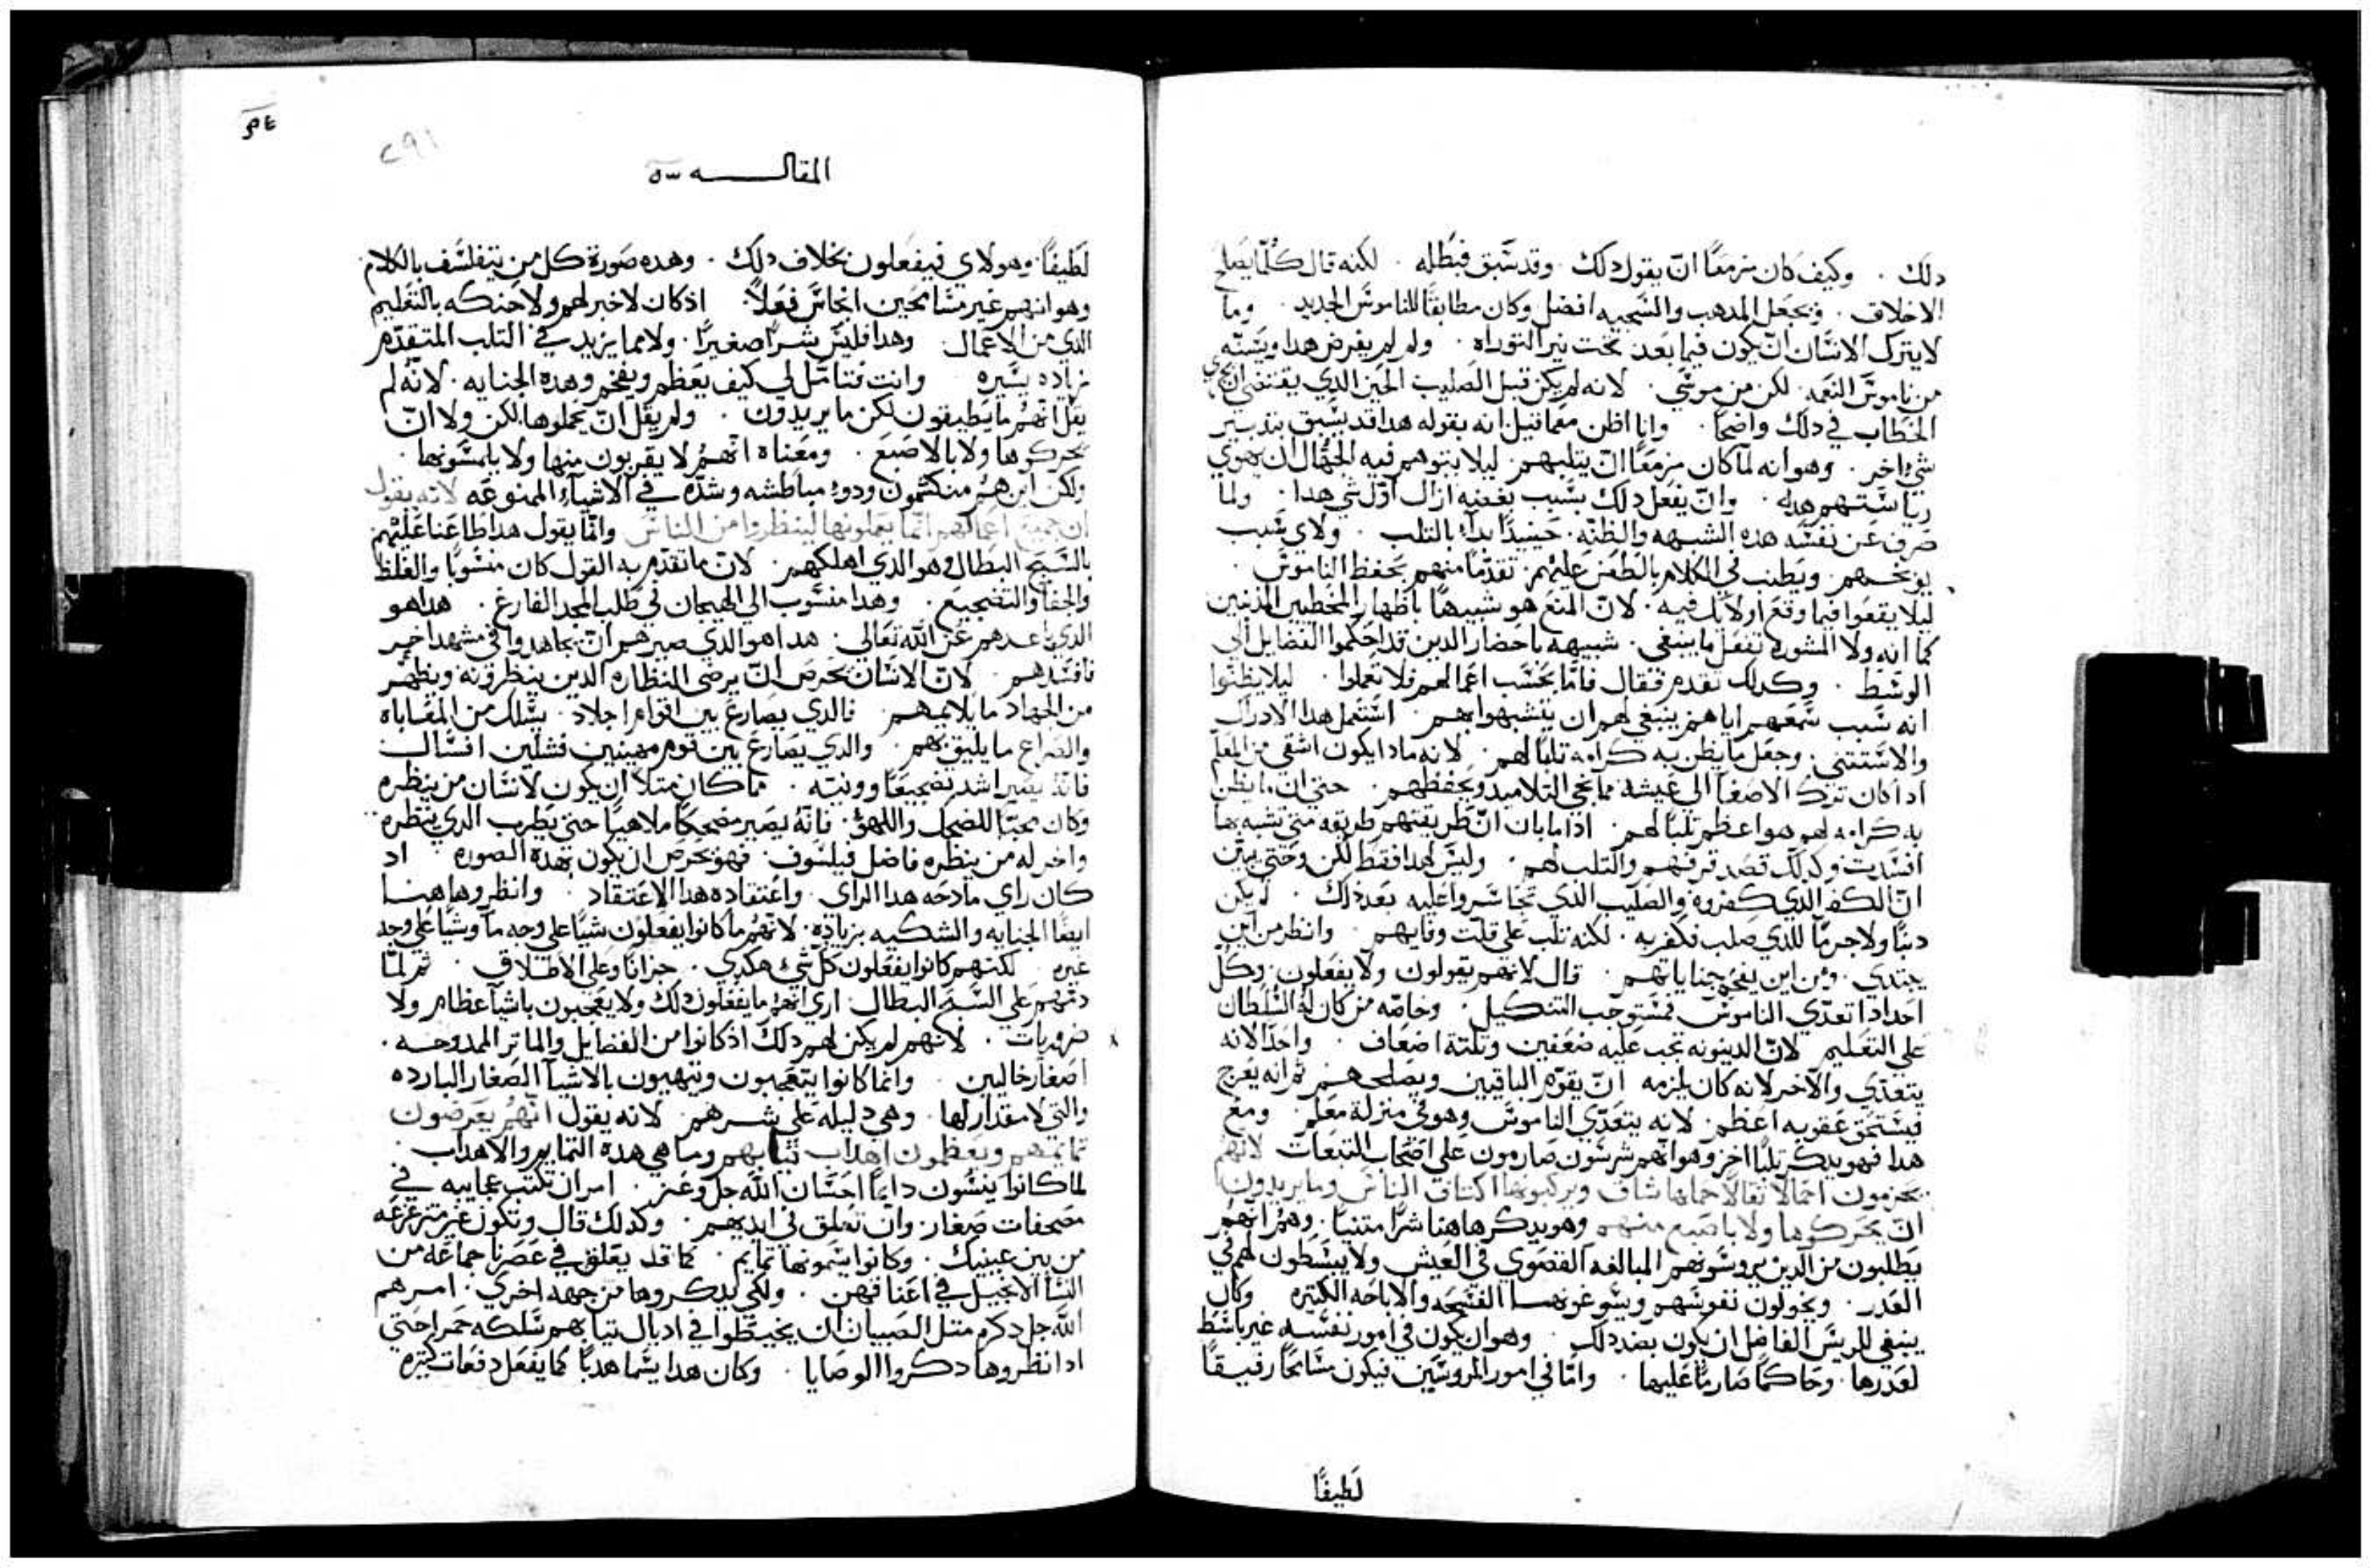 دلك . وكيف كان مزمعًا انّ يقول دلك . وقد سَبق فبطله . لكنه قال كلّما يصلح
الاخلاق . ويجعل المدهب والسَجيه افضل وكان مطابقًا للناموسَ الجديد . وما
لا يترك الانسَان انّ يكون فيما بَعد تحت نير التوراه . ولم لم يفرض هدا ويسَنّه
من ناموسَ النعمه . لكن من موسَي . لانه لم يكن قبل الصَليب الحَين الدي يقتضي ان يجري
الخطاب في دلك واضحًا . وانا اظن معما قيل انه بقوله هدا قد يسَبق بتدبير
شي اخر . وهو انه لمّا كان مزمعًا انّ يتلبهم . ليلا يتوهم فيه الجهّال ان يهوي
رياسَتهم هده . وانّ يفعَل دلك بسَبب بغضه ازال اوّل شي هدا . ولما
صَرف عَن نفسَه هده الشبهه والظنّه . حَينيدًا بداء بالتلب . ولاي سَبب
يوبخهم . ويَطنب في الكلام بالطعَن عَليهم . تقدّمًا منهم بحَفظ الناموسَ .
ليلا يقعَوا فيما وقعَ اولايك فيه . لانّ المنعَ هو شبيهًا باظهار المخطيين المدنبين
كما انه ولا المشوره تفعَل ما ينبغي . شبيهه باحَضار الدين قد احَكموا الفضايل الي
الوسَط . وكدلك تقدم فقال فامّا بحَسَب اعَمالهم فلا تعَملوا . ليلا يظنّوا
انه سَبب سَمعَهم اياهم ينبغي لهم ان يتشبهوا بهم . اسَتعَمل هدا الادراك
والاسَتتني . وجعَل ما يظن به كرامه تلبًا لهم . لانه مادا يكون اشقي من المعَلّم
ادا كان ترك الاصَغا الي عَيشه مما ينجي التلاميد ويَحَفظهم . حتي ان ما يظن
به كرامه لهم هو اعظم تلبًا لهم . ادا ما بان انّ طَريقتهم طريقه متي تشبه بها
افسَدت . وكدلك قصَد قرفهم والتلب لهم . وليسَ لهدا فقط لكن وحَتي يبيّن
انّ الكفر الدي كفروه والصَليب الدي تجاسَروا عليه بَعد دلك . لم يكن
دنبًا ولا جرمًا للدي صَلب وكفر به . لكنه تلب عَلي قلّت وفايهم . وانظر من اين
يبتدي . ومن اين يفخّم جناياتهم . قال لانهم يقولون ولا يفعَلون . وكلّ
احَد ادا تعدّي الناموسَ فمسَتوجب التنكيل . وخاصّه من كان له السَلطان
عَلي التعَليم . لانّ الدينونه تجب عَليه ضعَفين وتلتة اضعَاف . واحَدًا لانه
يتعَدّي والاخر لانه كان يلزمه انّ يقوّم الباقين ويصَلحهم . ثم انه يعَرج
فيسَتحَق عَقوبه اعَظم . لانه يتعَدّي الناموسَ وهو في منزلة معَلم . ومعَ
هدا فهو يدكر تلبًا اخر وهو انّهم شرسَون صَارمون عَلي اصَحاب التبعَات . لانّهم
يحَزمون احَمالًا تقالًا حَملها شاق ويركبونها اكتاف الناسَ وما يريدون
انّ يحَركوها ولا باصَبع منهم . وهو يدكر هاهنا شرًّا متنيًا . وهم انّهم
يَطلبون من الدين يروسَونهم المبالغه القصَوي في العَيش . ولا يبسَطون لهم في
العَدر . ويخولون نفوسَهم ويسَوغونها الفسَحَه والاباحَه الكتيره . وكان
ينبغي للريسَ الفاضل ان يكون بضد دلك . وهو ان يكون في امور نفسَه غير باسَط
لعَدرها . وحَاكمًا صَارمًا عَليها . وامّا في امور المروسَين فيكون مسَامحًا رفيقًا
لَطيفًا
المقاله
لَطيفًا . وهولاي فيفعَلون بخلاف دلك . وهده صَورة كل من يتفلسَف بالكلام .
وهو انهم غير مسَامحَين انجاسَ فعَلًا . اد كان لا خبر لهم ولا حَنكه بالتعَليم
الدي من الاعَمال . وهدا فليسَ شرًّا صَغيرًا . ولا مما يزيد في التلب المتقدّم
زياده يسَيره . وانت فتامّل لي كيف يعَظم ويفخّم وهده الجنايه . لانّه لم
يقل انّهم ما يَطيقون لكن ما يريدون . ولم يقل انّ يحَملوها لكن ولا انّ
يحَركوها ولا بالاصَبع . ومعَناه انّهم لا يقربون منها ولا يلمسَونها .
ولكن اين هم منكتمون ودوو مباطشه وشدّه في الاشياء الممنوعَه لانه يقول
ان جميع اعَمالهم انّما يعَملونها لينظروا من الناسَ وانّما يقول هدا طاعَنًا عَليهم
بالسَبح البَطال وهو الدي اهلكهم . لانّ ما تقدّم به القول كان منسَوبًا والغلظ
والجفا والتضجيع . وهدا منسَوب الي الهيجان في طلب المجد الفارغ . هدا هو
الدي باعَدهم عَن الله تعَالي . هدا هو الدي صيرهم انّ يجاهدوا في مشهد اخر
فافسَدهم . لانّ الانسَان يحَرص انّ يرضي النظاره الدين ينظرونه ويظهر
من الجهاد ما يلايمهم . فالدي يصَارع بين اقوام اجلاد . يسَلك من المقاباه
والصَراع ما يليق بهم . والدي يصَارع بين قوم مهينين فشلين افسَال
فانّه يصَير اشد تضجيعًا وونيّه . فما كان متلًا ان يكون لانسَان من ينظره
وكان محبًّا للضحَك واللهو . فانّه يصَير مضحكًا ملاهيًا حتي يَطرب الدي ينظره .
واخر له من ينظره فاضل فيلسَوف . فهو يحَرص ان يكون بهده الصَوره . اد
كان راي مادحَه هدا الراي . واعَتقاده هدا الاعَتقاد . وانظر وهاهنا
ايضًا الجنايه والشكيه بزياده . لانّهم ما كانوا يفعَلون شيًا عَلي وجه ما وشيًا عَلي وجه
غيره . لكنهم كانوا يفعَلون كل شي هكدي . جزافًا وعَلي الاطلاق . ثم لمّا
دمّهم عَلي السَبح البطال . اري انهم ما يفعَلون دلك ولا يعَجبون باشيا عَظام ولا
ضروريات . لانهم لم يكن لهم دلك اد كانوا من الفضايل والماتر الممدوحَه .
اصَفار خاليين . وانّما كانوا يتعَجبون ويتهيبون بالاشيا الصَغار البارده
والتي لا مقدار لها . وهي دليله عَلي شرهم . لانه يقول انّهم يعَرضون
تمايمهم ويعَظمون اهداب تيابهم . وما هي هده التمايم والاهداب .
لما كانوا ينسَون دايمًا احَسَان الله جل وعَز . امر ان تكتب عَجايبه في
مصَحفات صَغار . وان تعَلق في ايديهم . وكدلك قال وتكون غير متزعزعَه
من بين عَينيك . وكانوا يسَمونها تمايم . كما قد يعَلق في عَصَرنا جماعَه من
النسَا الانجيل في اعَناقهن . ولكي يدكروها من جهه اخري . امرهم
الله جل دكره متل الصَبيان ان يخيطوا في ادبال تيابهم سَلكه حَمرا حَتي
ادا نظروها دكروا الوصَايا . وكان هدا يسَما هدبًا كما يفعَل دفعَات كتيره